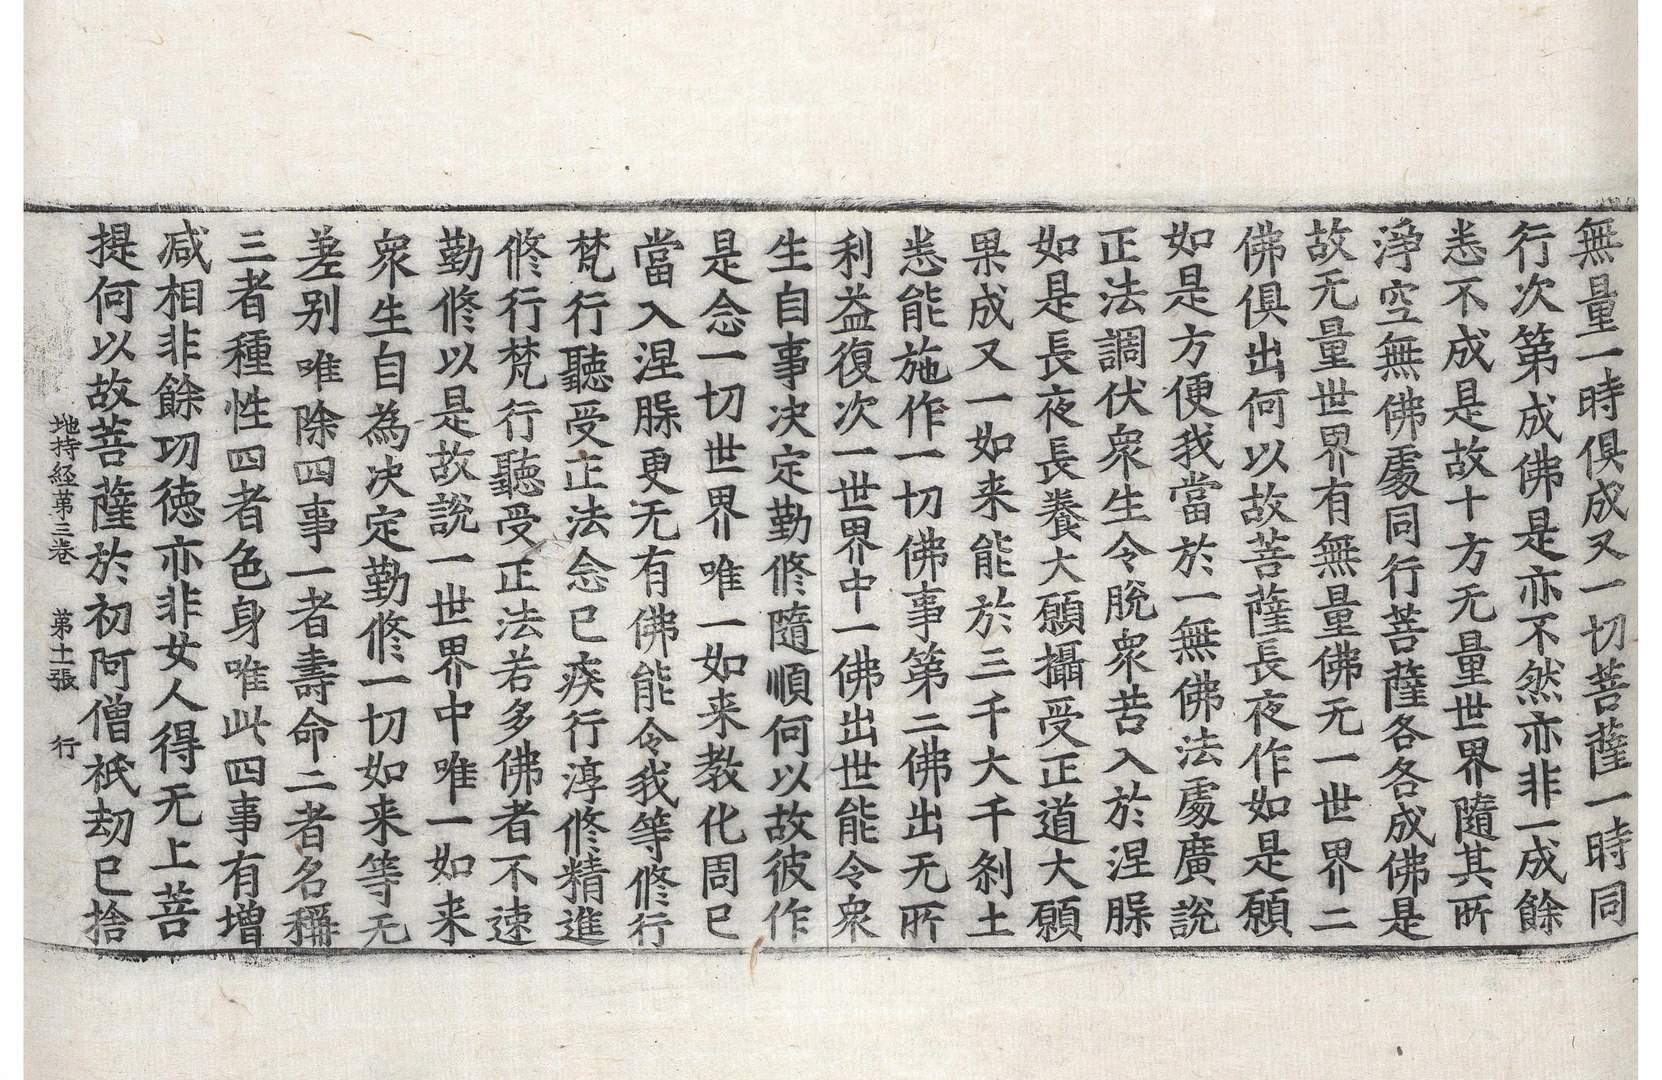 無量一時俱成又一切菩薩一時同
行次第成佛是亦不然亦非一成餘
悉不成是故十方无量世界隨其所
淨空無佛處同行菩薩各各成佛是
故无量世界有無量佛无一世界二
佛俱出何以故菩薩長夜作如是願
如是方便我當於一無佛法處廣說
正法調伏衆生令脫衆苦入於涅槃
如是長夜長養大願攝受正道大願
果成又一如来能於三千大千刹土
悉能施作一切佛事第二佛出无所
利益復次一世界中一佛出世能令衆
生自事决定勤修隨順何以故彼作
是念一切世界唯一如来教化周已
當入涅槃更无有佛能令我等修行
梵行聽受正法念已疾行淳修精進
修行梵行聽受正法若多佛者不速
勤修以是故說一世界中唯一如来
衆生自為决定勤修一切如来等无
差别唯除四事一者壽命二者名稱
三者種性四者色身唯此四事有增
减相非餘功德亦非女人得无上菩
提何以故菩薩於初阿僧祇劫已捨
地持經第三卷 第十一張 行